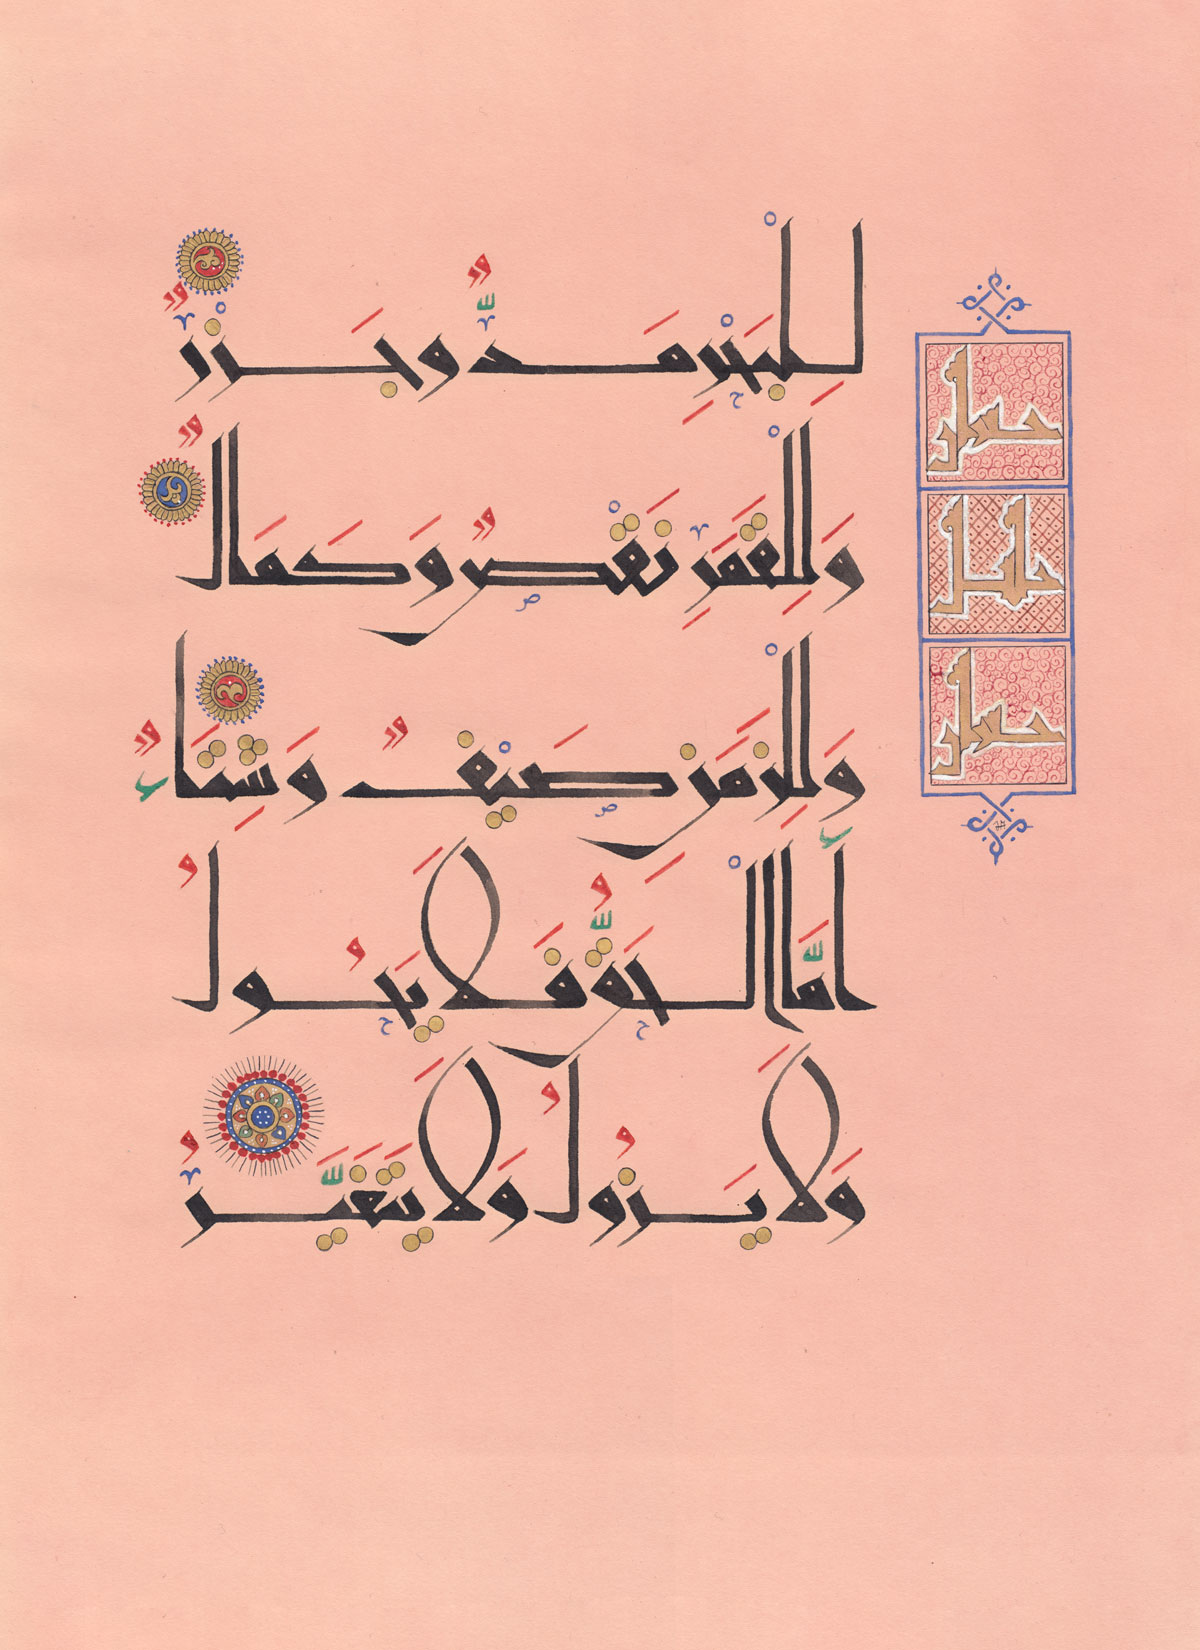 لِلْبَحْرِ مَدٌّ وَجَزْرٌ
وَلِلْقَمَرِ نَقْصٌ وَكَمَالٌ
وَلِلْزَمَنِ صَيْفٌ وَشِتَاءٌ
أَمَّا الْحَقُّ فَلَا يَحُولُ
وَلَا يَزُولُ وَلَا يَتَغَيَّرُ